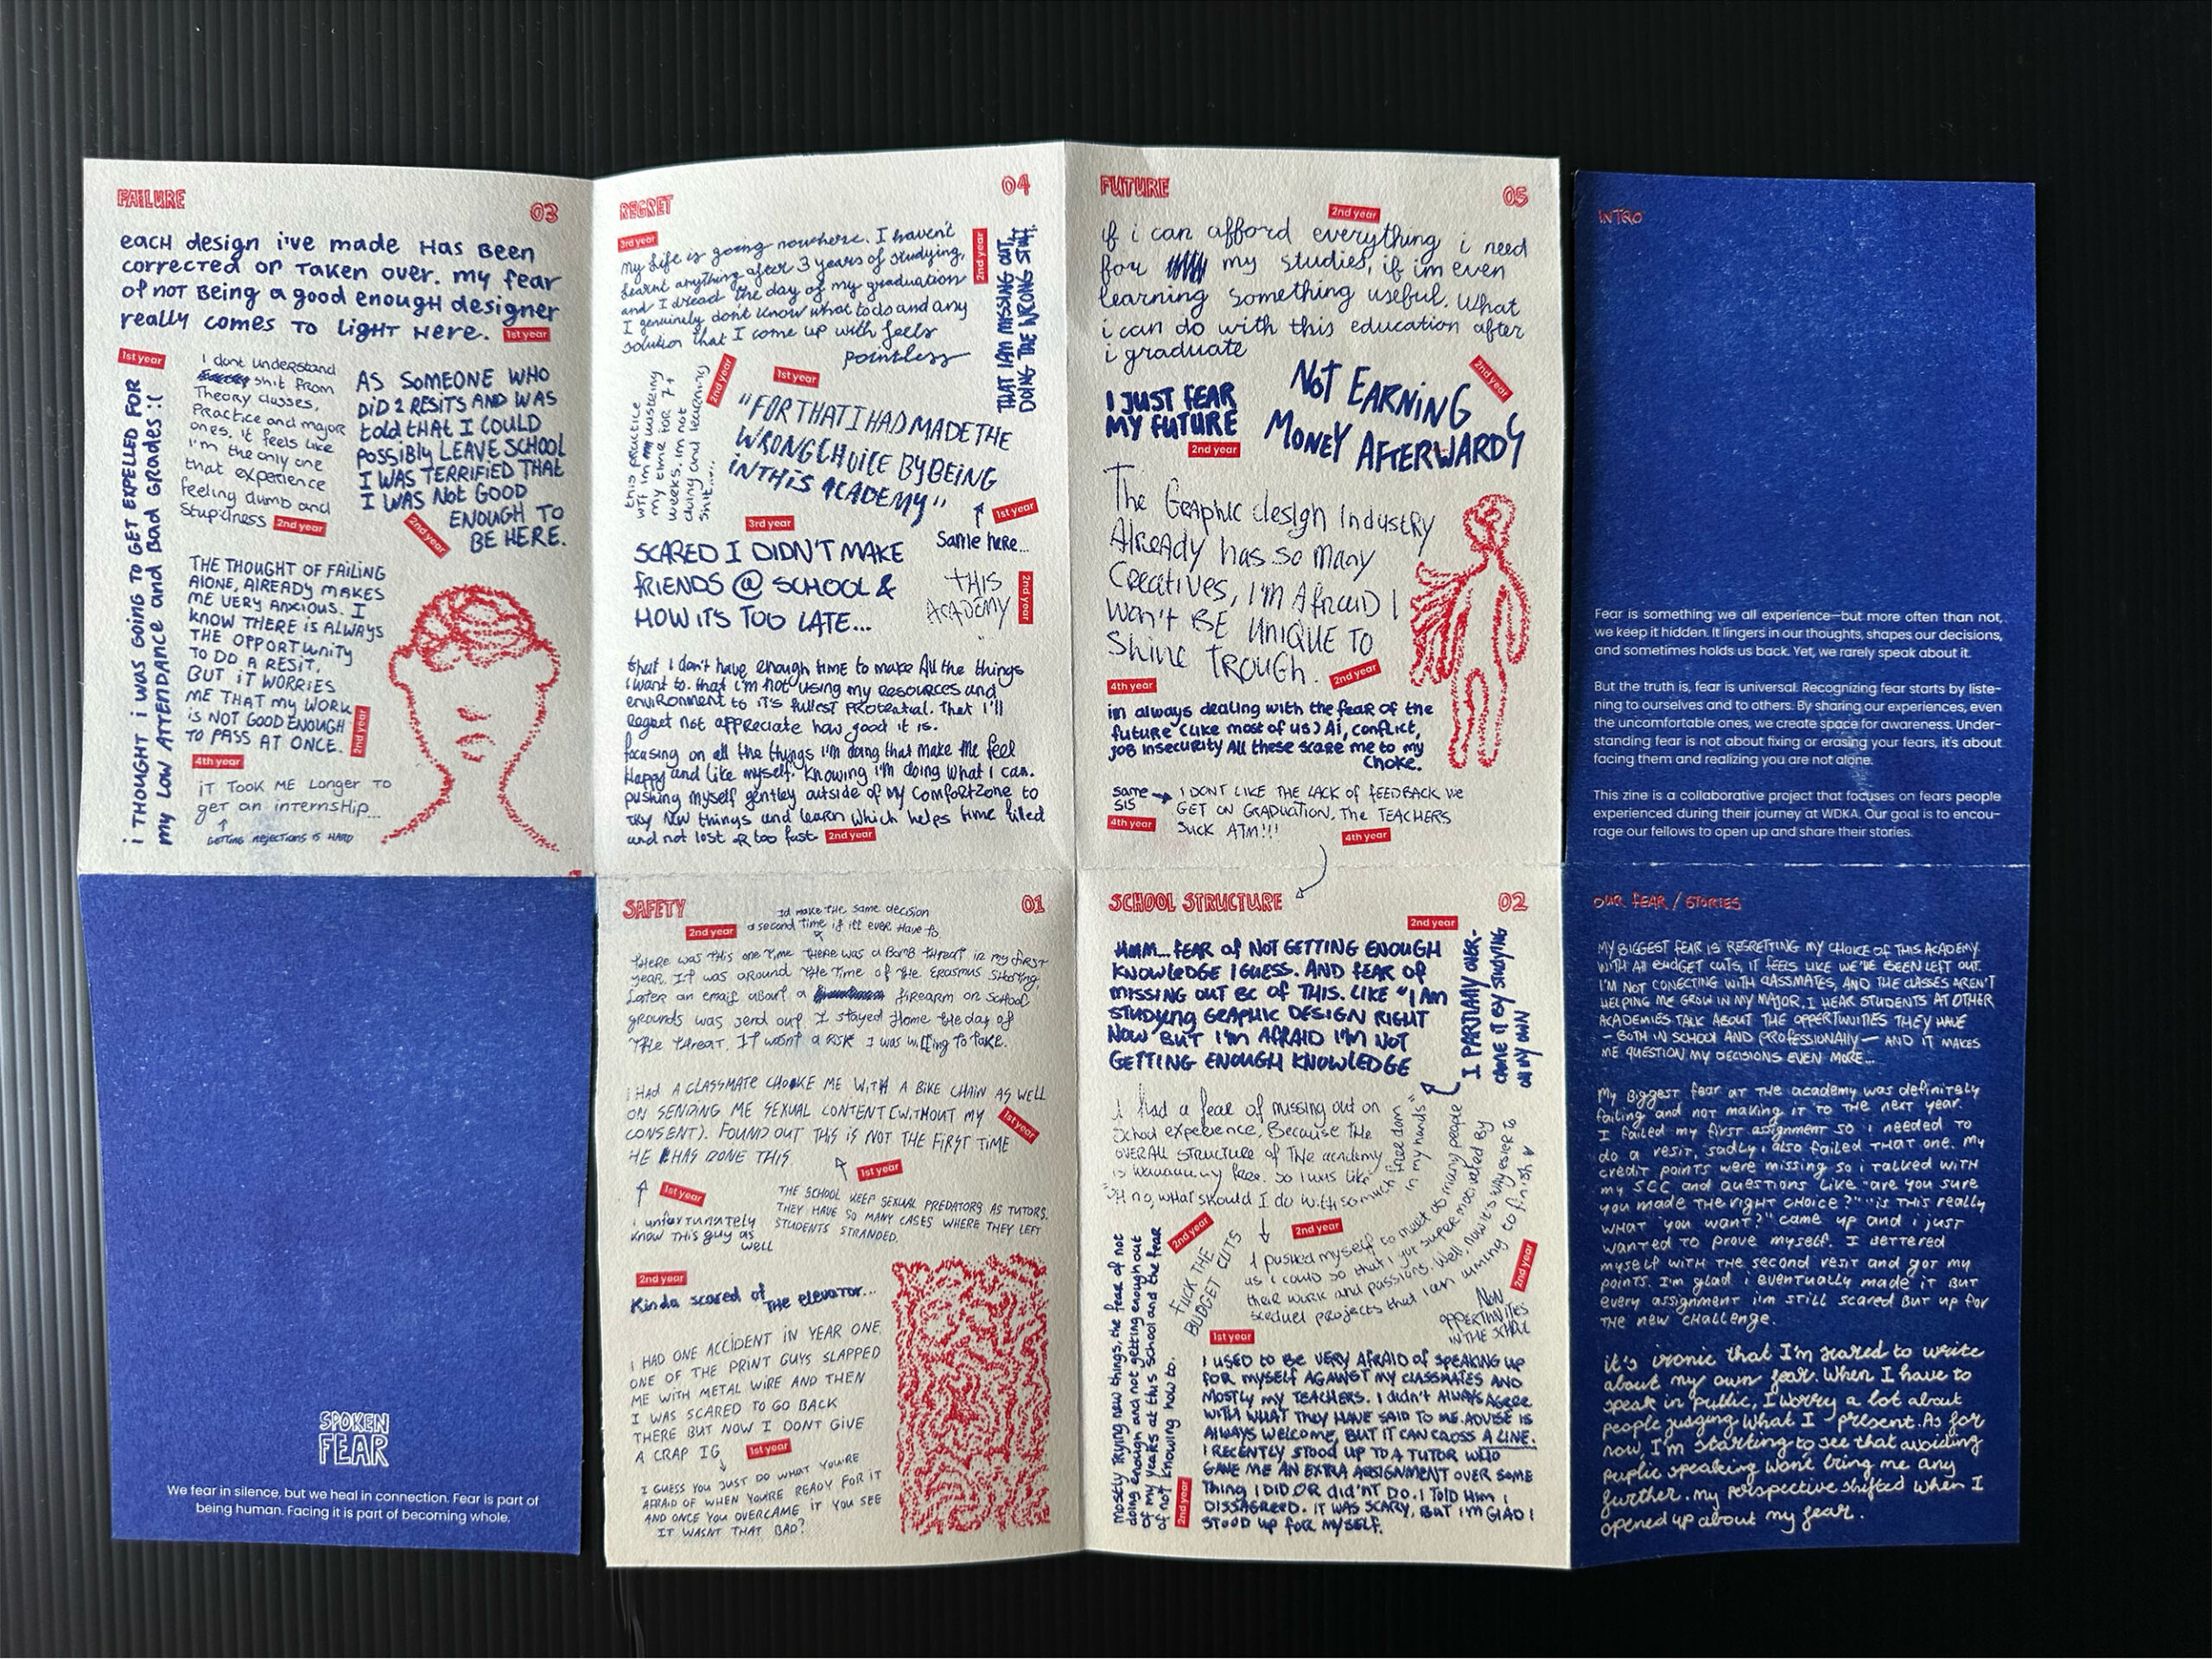 FAILURE
03
each design i've made has been
corrected or taken over. my fear
of not being a good enough designer
really comes to light here.
1st year
1st year
i THOUGHT i WAS GOING TO GET EXPELLED FOR
my LOW ATTENDANCE and Bad GRades :(
I dont understand
shit from
Theory classes,
Practice and major
ones. it feels like
I'm the only one
that experience
feeling dumb and
Stupidness
2nd year
AS SOMEONE WHO
DID 2 RESITS AND WAS
told that I COULD
POSSIBLY LEAVE SCHOOL
I WAS TERRIFIED THAT
I WAS NOT GOOD
ENOUGH TO
BE HERE.
2nd year
THE THOUGHT OF FAILING
ALONE, ALREADY MAKES
ME VERY ANXIOUS. I
KNOW THERE IS ALWAYS
THE OPPORTUNITY
TO DO A RESIT,
BUT IT WORRIES
ME THAT my WORK
IS NOT GOOD ENOUGH
TO PASS AT ONCE.
2nd year
4th year
IT TOOK ME Longer TO
get an internship...
GETTING REJECTIONS IS HARD
REGRET
04
3rd year
My life is going nowhere. I haven't
learnt anything after 3 years of studying,
and I dread the day of my graduation
I genuinely don't know what to do and any
solution that I come up with feels
pointless
2nd year
THAT I AM MISSING OUT,
DOING THE WRONG STH.
this practice
wtf im wasting
my time for 7+
weeks. im not
doing and learning
shit....
2nd year
1st year
"FOR THAT I HAD MADE THE
WRONG CHOICE BY BEING
IN THIS ACADEMY"
1st year
Same here...
3rd year
SCARED I DIDN'T MAKE
FRIENDS @ SCHOOL &
HOW IT'S TOO LATE...
THIS
ACADEMY
2nd year
that I don't have enough time to make All the things
I want to. that i'm not using my resources and
environment to it's fullest protential. That I'll
Regret not appreciate how good it is.
focusing on all the things I'm doing that make me feel
Happy and like myself. Knowing i'm doing what I can.
pushing myself gentley outside of my comfortzone to
try new things and learn which helps time filled
and not lost or too fast
2nd year
FUTURE
05
2nd year
if i can afford everything i need
for my studies, if im even
learning something useful. What
i can do with this education after
i graduate
I JUST FEAR
MY FUTURE
2nd year
NOT EARNING
MONEY AFTERWARDS
2nd year
The Graphic design Industry
Already has so many
Creatives, I'm Afraid I
Won't BE UNIQUE TO
Shine TROUGH.
2nd year
4th year
im always dealing with the fear of the
future (like most of us) Ai, conflict,
job insecurity All these scare me to my
choke.
same
sis
4th year
I DONT LIKE THE LACK OF FEEDBACK WE
GET ON GRADUATION. The TEACHERS
SUCK ATM!!!
4th year
INTRO
Fear is something we all experience—but more often than not,
we keep it hidden. It lingers in our thoughts, shapes our decisions,
and sometimes holds us back. Yet, we rarely speak about it.
But the truth is, fear is universal. Recognizing fear starts by liste-
ning to ourselves and to others. By sharing our experiences, even
the uncomfortable ones, we create space for awareness. Under-
standing fear is not about fixing or erasing your fears, it's about
facing them and realizing you are not alone.
This zine is a collaborative project that focuses on fears people
experienced during their journey at WDKA. Our goal is to encou-
rage our fellows to open up and share their stories.
SPOKEN
FEAR
We fear in silence, but we heal in connection. Fear is part of
being human. Facing it is part of becoming whole.
SAFETY
01
2nd year
Id make the same decision
a second time if itt ever have to
THERE WAS THIS one time there was a Bomb threat in my first
year. It was around the time of the Erasmus Shooting,
Later an email about a firearm on school
grounds was send out. I stayed home the day of
the threat. IT wasnt a RISK I was willing to take.
I HAD A CLASSMATE CHOKE ME WITH A BIKE CHAIN AS WELL
ON SENDING ME SEXUAL CONTENT (WITHOUT MY
CONSENT). FOUND OUT THIS IS NOT THE FIRST TIME
HE HAS DONE THIS
1st year
1st year
i unfortunately
know THIS guy as
well
1st year
THE SCHOOL KEEP SEXUAL PREDATORS AS TUTORS.
THEY HAVE SO MANY CASES WHERE THEY LEFT
STUDENTS STRANDED.
2nd year
Kinda scared of THE elevator...
I HAD ONE ACCIDENT IN YEAR ONE,
ONE OF THE PRINT GUYS SLAPPED
ME WITH METAL WIRE AND THEN
I WAS SCARED TO GO BACK
THERE BUT NOW I DONT GIVE
A CRAP IG
1st year
I GUESS YOU JUST DO WHAT YOU'RE
AFRAID OF WHEN YOU'RE READY FOR IT
AND ONCE YOU OVERCAME IT YOU SEE
IT WASNT THAT BAD?
SCHOOL STRUCTURE
02
2nd year
HMM... FEAR of NOT GETTING ENOUGH
KNOWLEDGE I GUESS. AND FEAR OF
MISSING OUT BC OF THIS. LIKE "I AM
STUDYING GRAPHIC DESIGN RIGHT
NOW BUT I'M AFRAID I'M NOT
GETTING ENOUGH KNOWLEDGE
I PARTIALLY OVER-
CAME IT BY STUDYING
ON MY OWN
I had a fear of missing out on
School experience, Because the
OVERAll STRUCTURE of THe academy
is waaaaay free. So I was like
"Oh no, what should I do with so much "freedom
in my hands"
2nd year
I pushed myself to meet as many people
as i could so that i got super motivated by
their work and passions. Well, now it's way easier to
projects that I am aiming to finish
2nd year
FUCK THE
BUDGET CUTS
2nd year
NON
OPPERTINITIES
IN THE SCHOOL
mostly trying new things, the fear of not
doing enough and not getting enough out
of my years at this school and the fear
of not knowing how to.
2nd year
1st year
I USED TO BE VERY AFRAID OF SPEAKING UP
FOR MYSELF AGAINST MY CLASSMATES AND
MOSTLY MY TEACHERS. I didn't ALWAYS AGREE
WITH WHAT THEY HAVE SAID TO ME. ADVISE IS
ALWAYS WELCOME, BUT IT CAN CROSS A LINE.
I RECENTLY STOOD UP TO A TUTOR WHO
GAVE ME AN EXTRA ASSIGNMENT OVER SOME
THING I DID OR did'NT DO. I TOLD HIM I
DISSAGREED. IT WAS SCARY, BUT I'M GLAD I
STOOD UP FOR MYSELF.
OUR FEAR / STORIES
MY BIGGEST FEAR IS REGRETTING MY CHOICE OF THIS ACADEMY.
WITH All BUDGET CUTS, IT FEELS LIKE WE'VE BEEN LEFT OUT.
I'M NOT CONECTING WITH CLASSMATES, AND THE CLASSES AREN'T
HELPING ME GROW IN MY MAJOR. I HEAR STUDENTS AT OTHER
ACADEMIES TALK ABOUT THE OPPERTUNITIES THEY HAVE
— BOTH IN SCHOOL AND PROFESSIONAllY — AND IT MAKES
ME QUESTION MY DECISIONS EVEN MORE...
My Biggest fear at the academy was definitely
failing and not making it to the next year.
I failed my first assignment so i needed to
do a resit, sadly i also failed that one. my
credit points were missing so i talked with
my SCC and questions like "are you sure
you made the right choice?" "is this really
what you want?" came up and i just
wanted to prove myself. I bettered
myself with the second resit and got my
points. I'm glad i eventually made it but
every assignment i'm still scared but up for
the new challenge.
it's ironic that I'm scared to write
about my own fear. When I have to
speak in public, I worry a lot about
people judging what I present. As for
now, I'm starting to see that avoiding
puplic speaking won't bring me any
further. my perspective shifted when I
opened up about my fear.